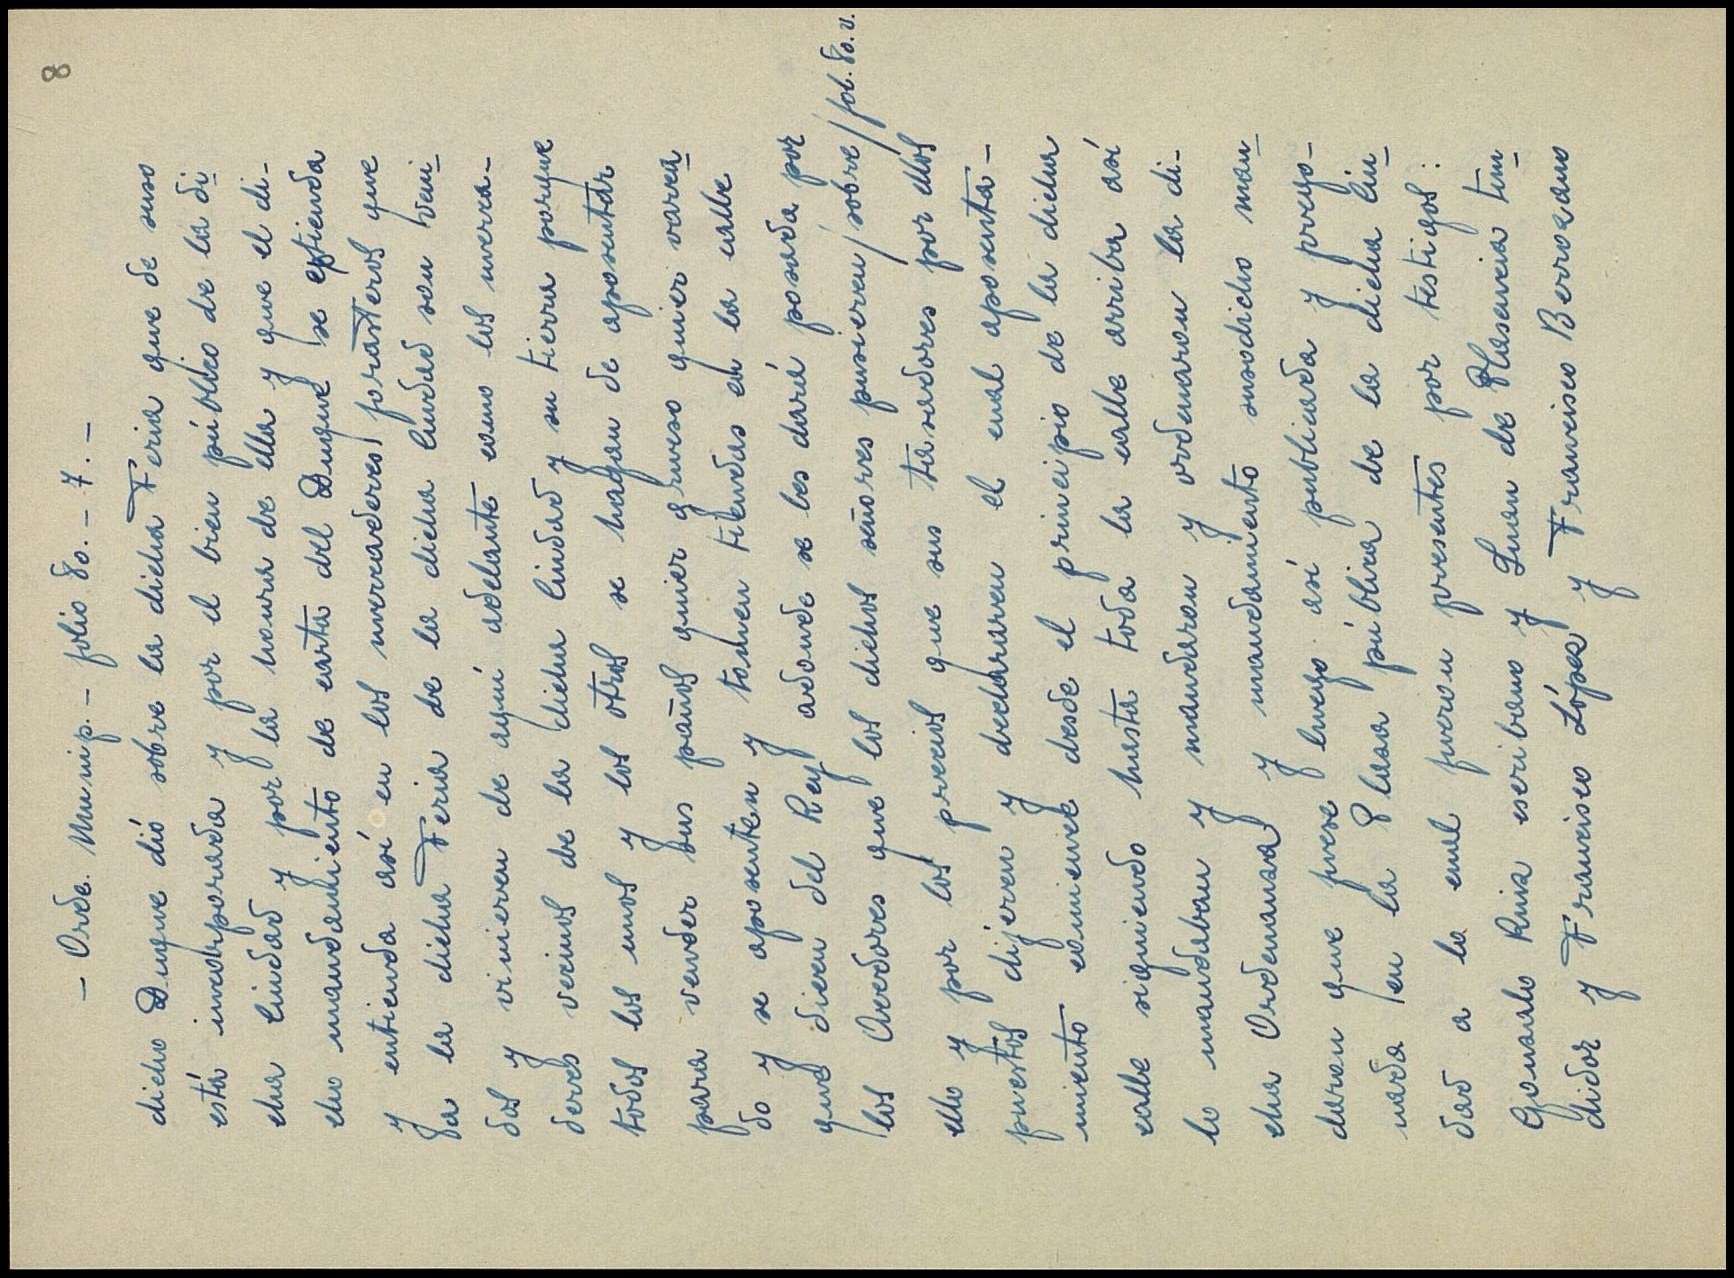 8
- Orde. Munip. - folio 80. - 7. -
dicho Duque dió sobre la dicha Feria que de suso
está incorporada y por el bien público de la di-
cha ciudad y por la honra de ella y que el di-
cho mandamiento de carta del Duque se estienda
y entienda así en los mercaderes forasteros que
a la dicha Feria de la dicha ciudad son veni-
dos y vinieren de aquí adelante como los merca-
deres vecinos de la dicha ciudad y su tierra porque
todos los unos y los otros se hagan de aposentar
para vender sus paños quier grueso quier varea-
do y se aposenten y tomen tiendas en la calle
que dicen del Rey adonde se les dará posada por
los Arcedores que los dichos señores pusieren/sobre/fol. 80. v.
ello y por los precios que sus tasadores por ellos
puestos dijeren y declararen el cual aposenta-
miento comience desde el principio de la dicha
calle siguiendo hasta toda la calle arriba así
lo mandaban y mandaron y ordenaron la di-
cha Ordenanza y mandamiento susodicho man-
daron que fuese y luego así publicada y prego-
nada en la Plaza pública de la dicha ciu-
dad a lo cual fueron presentes por testigos:
Gonzalo Ruiz escribano y Juan de Plasencia tun-
didor y Francisco López y Francisco Berrozano